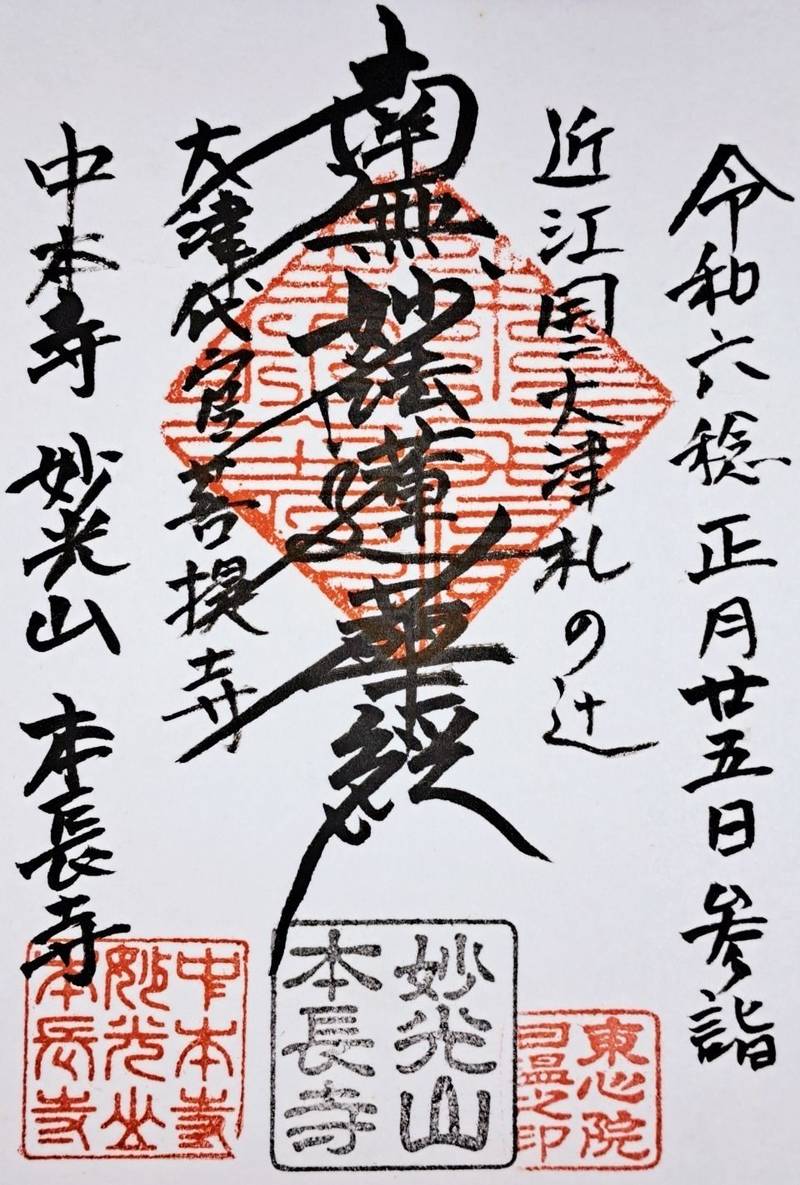 令和六稔正月廿五日 参詣
近江国大津札の辻
南無妙法蓮華経
大津代官菩提寺
中本寺 妙光山 本長寺
東心院
之印
妙光山
本長寺
中本寺
妙光山
本長寺